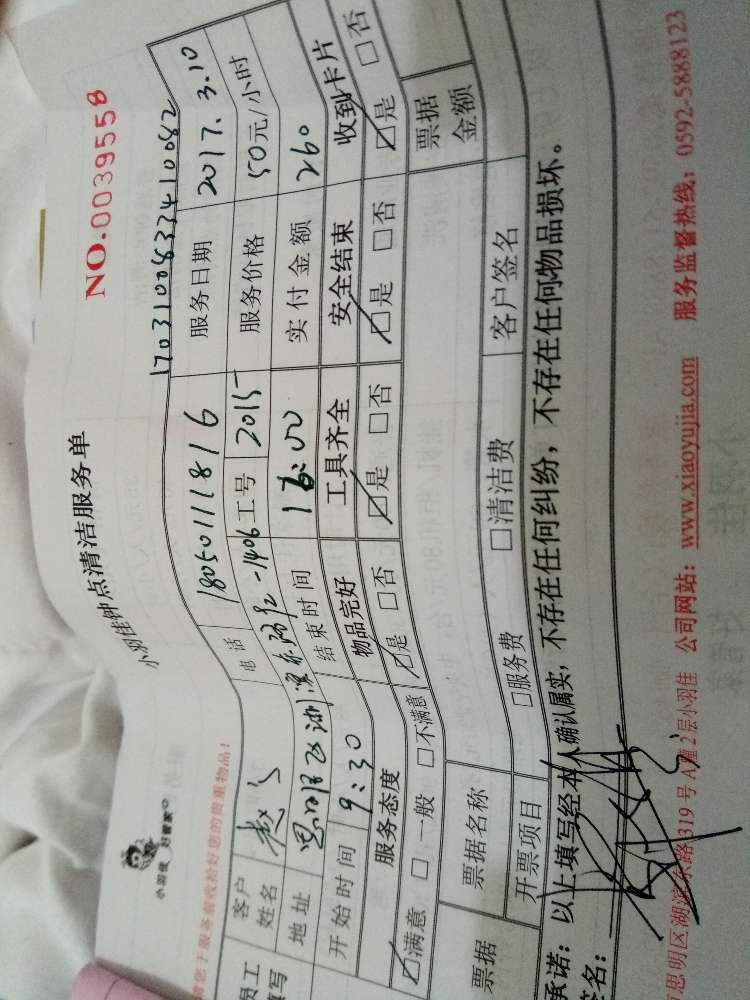 小羽佳 好管家
小羽佳钟点清洁服务单
NO.0039558
请您于服务前收拾好您的贵重物品！
1703100833410082
客户姓名 电话 18050111816 服务日期 2017.3.10
地址 -1406 工号 2015 服务价格 50元/小时
开始时间 9:30 结束时间 实付金额 260
服务态度 物品完好 工具齐全 安全结束 收到卡片
☑满意 □一般 □不满意 ☑是 □否 ☑是 □否 ☑是 □否 ☑是 □否
票据 票据名称 票据金额
开票项目 □服务费 □清洁费 客户签名
承诺：以上填写经本人确认属实，不存在任何纠纷，不存在任何物品损坏。
签名：
思明区湖滨东路319号A幢2层小羽佳 公司网站：www.xiaoyujia.com 服务监督热线：0592-5888123